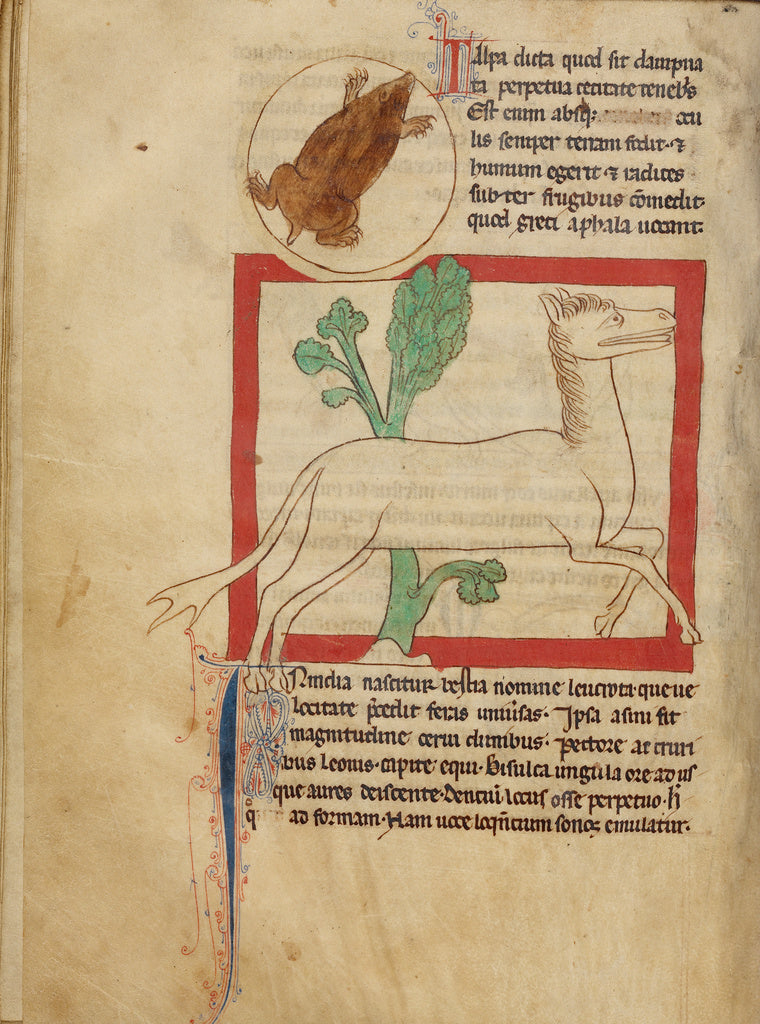 Talpa dicta quod sit dampna
ta perpetua cecitate teneb's
Est enim absq; ocu
lis semper terram fodit ⁊
humum egerit ⁊ radices
subter frugibus cōmedit
quod greci aphala uocant.
In india nascitur bestia nomine leucrota que ue
locitate p̄cedit feras uniu'sas. Ipsa asini fit
magnitudine cerui clunibus. Pectore ac cruri
bus leonis. capite equi. Bisulca ungula ore ad us
que aures deiscente. Dentiū locus osse perpetuo. h̄
ad formam. Nam uoce loq̄ntium sonos emulatur.